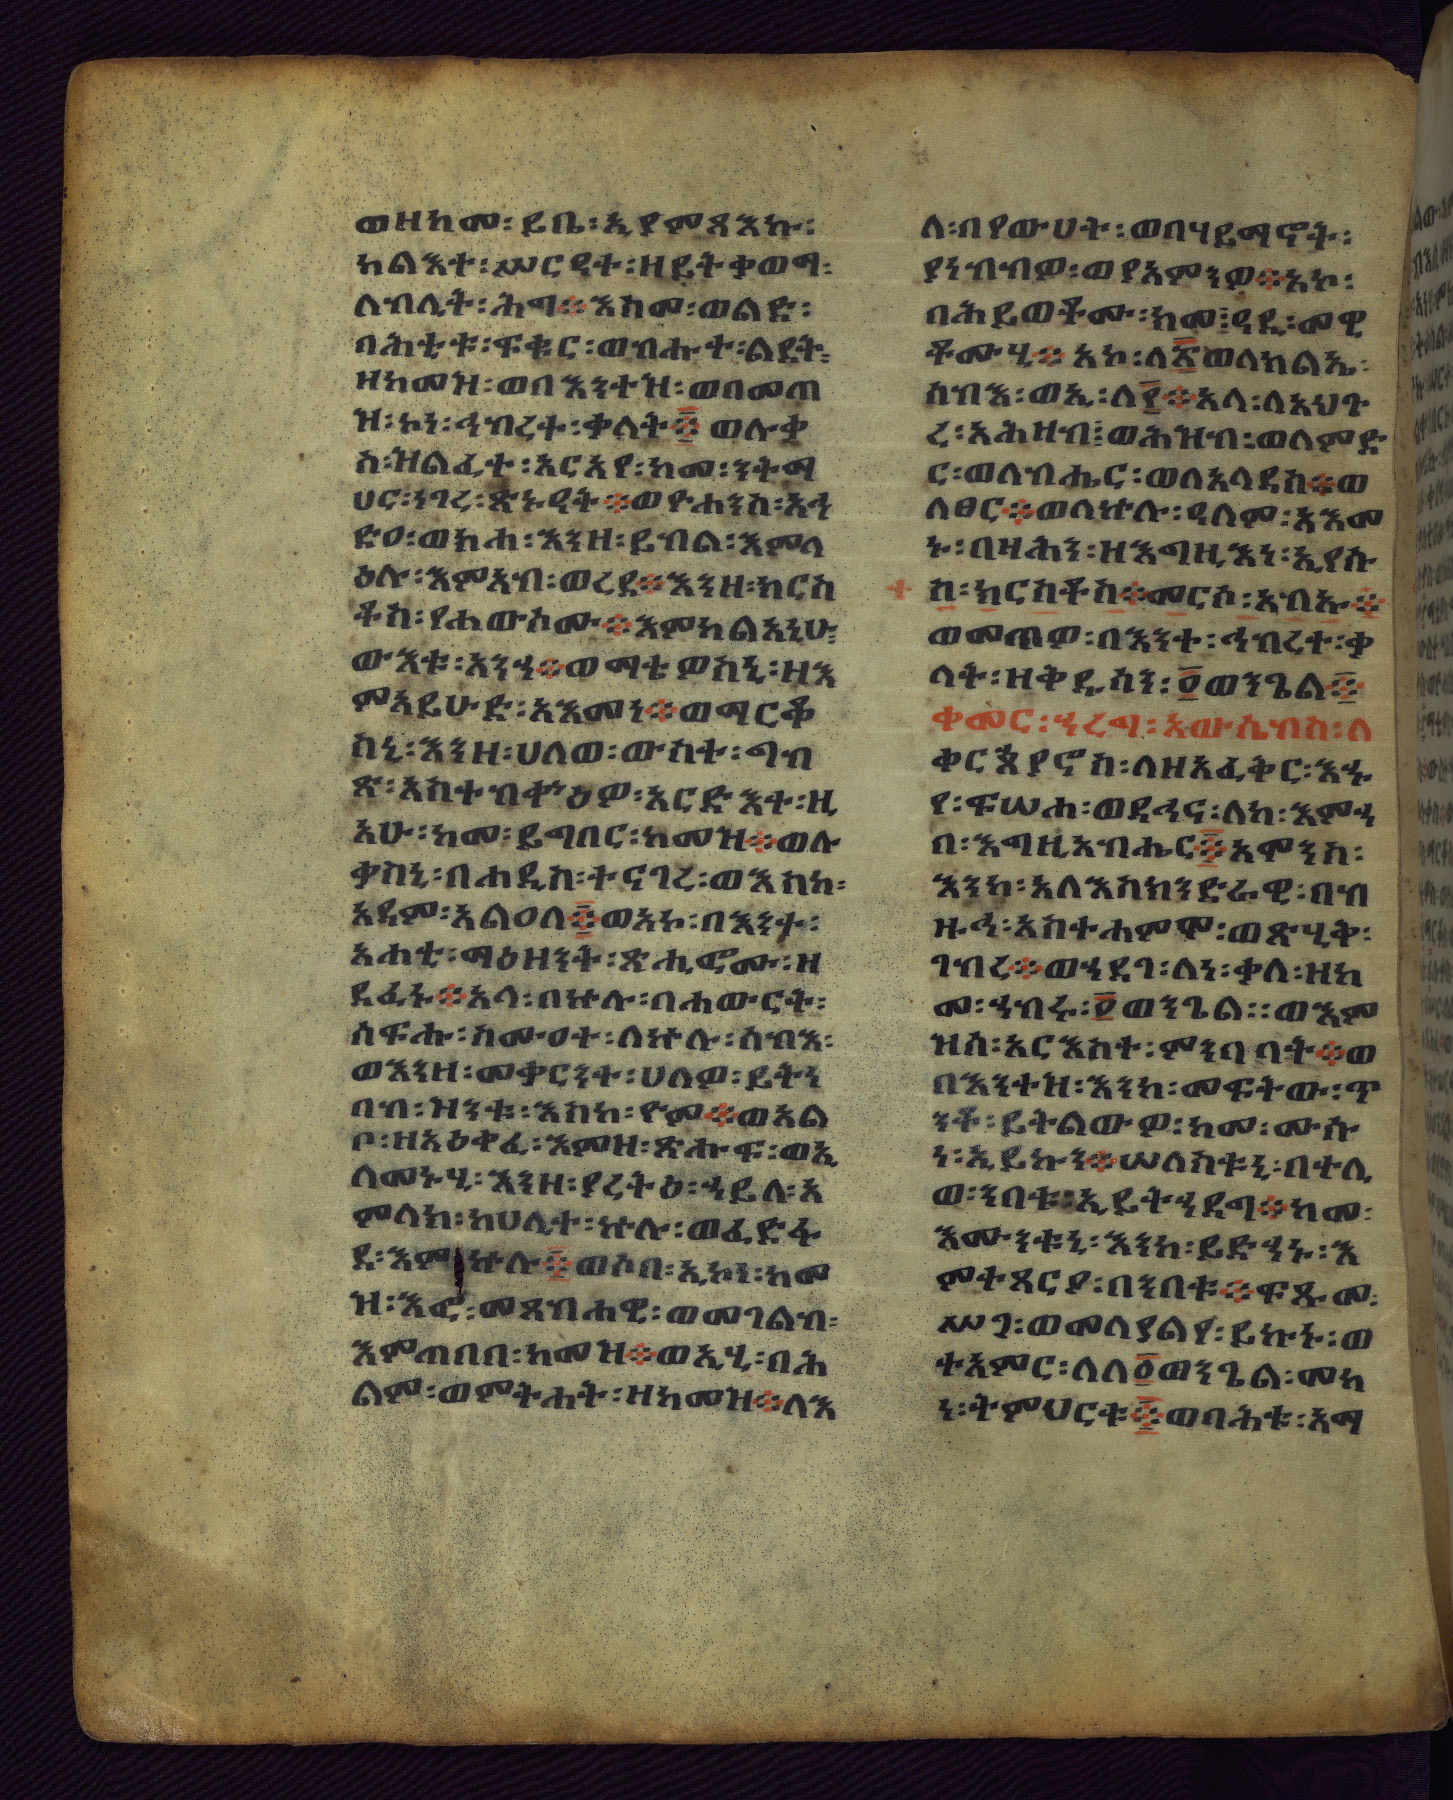 ወዘከመ፡ ይቤ፡ ኢያምጻእኩ፡
ካልእተ፡ ሥርዓተ፡ ዘይትቀወማ፡
ለብሊት፡ ሕግ፨ እከመ፡ ወልድ፡
ባሕቲቱ፡ ፍቁር፡ ወብሑተ፡ ልደት፡
ዘከመዝ፡ ወበእንተዝ፡ ወበመጠ
ዝ፡ ኮነ፡ ኅብረተ፡ ቀለት፨ ወሉቃ
ስ፡ ዝልፈተ፡ አርአየ፡ ከመ፡ ንትማ
ሀር፡ ነገረ፡ ጽኑዓት፨ ወዮሐንስ፡ አኀ
ድዐ፡ ወከሐ፡ እንዘ፡ ይብል፡ እምላ
ዕሉ፡ እምአብ፡ ወረደ፨ እንዘ፡ ክርስ
ቶስ፡ የሐውሶሙ፨ እምካልአኒሁ፡
ውእቱ፡ አንኀ፨ ወማቴዎስኒ፡ ዘእ
ምአይሁድ፡ አእመነ፨ ወማርቆ
ስኒ፡ እንዘ፡ ሀለወ፡ ውስተ፡ ግብ
ጽ፡ አስተብቀንዕዎ፡ አርድእተ፡ ዚ
አሁ፡ ከመ፡ ይግበር፡ ከመዝ፨ ወሉ
ቃስኒ፡ በሐዲስ፡ ተናገረ፡ ወእስከ፡
አዳም፡ አልዐለ፨ ወአኮ፡ በእንተ፡
አሐቲ፡ ማዕዘንት፡ ጽሒፎሙ፡ ዘ
ደፈኑ፨ አላ፡ በኵሉ፡ በሐውርት፡
ሰፍሑ፡ ስሙዐተ፡ ለኵሉ፡ ሰብእ፡
ወእንዘ፡ መቃርንተ፡ ሀለዎ፡ ይትነ
በብ፡ ዝንቱ፡ እስከ፡ ዮም፨ ወአል
ቦ፡ ዘአዕቀፈ፡ እምዘ፡ ጽሑፍ፡ ወኢ
ለመኑሂ፡ እንዘ፡ ያረትዕ፡ ኀይለ፡ አ
ምላክ፡ ከሀሊተ፡ ኵሉ፡ ወፈድፋ
ደ፡ እምኵሉ፨ ወሶበ፡ ኢኮነ፡ ከመ
ዝ፡ እፎ፡ መጻብሐዊ፡ ወመገልብ፡
እምጠበበ፡ ከመዝ፨ ወኢሂ፡ በሕ
ልም፡ ወምትሐት፡ ዘከመዝ፨ ለእ
ለ፡ በየውሀት፡ ወበሃይማኖት፡
ያነብብዎ፡ ወያአምንዎ፨ አኮ፡
በሕይወቶሙ፡ ከመ፡ ዳዴ፡ መዊ
ቶሙሂ፨ አኮ፡ ለ፩ወለካልኡ፡
ስብእ፡ ወኢ፡ ለ፪፨ አላ፡ ለአህጉ
ረ፡ አሕዛብ፡ ወሕዝብ፡ ወለምድ
ር፡ ወለብሔር፡ ወለአላዴስ፨ ወ
ለፀር፨ ወለኵሉ፡ ዓለም፡ አእመ
ኑ፡ በዛሕን፡ ዘእግዚእነ፡ ኢየሱ
ስ፡ ክርስቶስ፨ መርሶ፡ አብኡ፨
ወመጠዎ፡ በእንተ፡ ኅብረተ፡ ቃ
ላት፡ ዘቅዱስን፡ ፬ወንጌል፨
ቀመር፡ ኀረግ፡ አውሴብስ፡ ለ
ቀርጳያኖስ፡ ለዘአፈቅር፡ እኁ
የ፡ ፍሡሐ፡ ወዳኅና፡ ለከ፡ እምኀ
በ፡ እግዚአብሔር፨ አሞንስ፡
እንከ፡ አለእስክንድራዊ፡ በብ
ዙኅ፡ አስተሐምሞ፡ ወጽሂቅ፡
ገብረ፨ ወኀደገ፡ ለነ፡ ቃለ፡ ዘከ
መ፡ ኀብሩ፡ ፬ወንጌል፡፡ ወእም
ዝሰ፡ አርእስተ፡ ምንባባት፨ ወ
በእንተዝ፡ እንከ፡ መፍትው፡ ጥ
ንቶ፡ ይትልውዎ፡ ከመ፡ ሙሱ
ነ፡ ኢይኩን፨ ሠለስቱኒ፡ በተሊ
ወ፡ ንባቱ፡ ኢይትኀደግ፨ ከመ፡
እሙንቱኒ፡ እንከ፡ ይድኀኑ፡ እ
ምተጻርያ፡ በንባቱ፨ ፍጹመ፡
ሥጋ፡ ወመለያልየ፡ ይኩኑ፡ ወ
ተአምር፡ ለለ፬ወንጌል፡ መካ
ነ፡ ትምህርቱ፨ ወባሕቱ፡ አማ